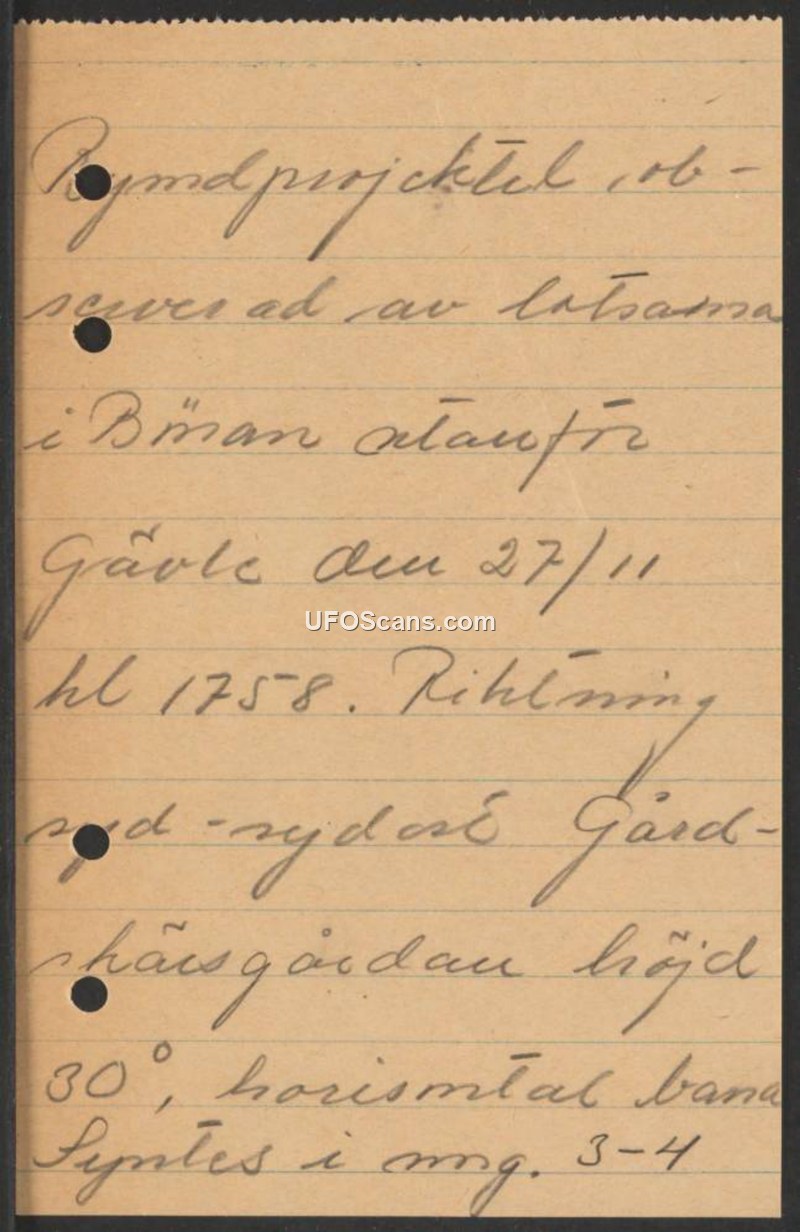 Rymdprojektil, ob-
serverad av lotsarna
i Bönan utanför
Gävle den 27/11
UFOScans.com
kl 1758. Riktning
syd-sydost Gård-
skärsgårdan höjd
30°, horisontal bana
Syntes i ung. 3-4